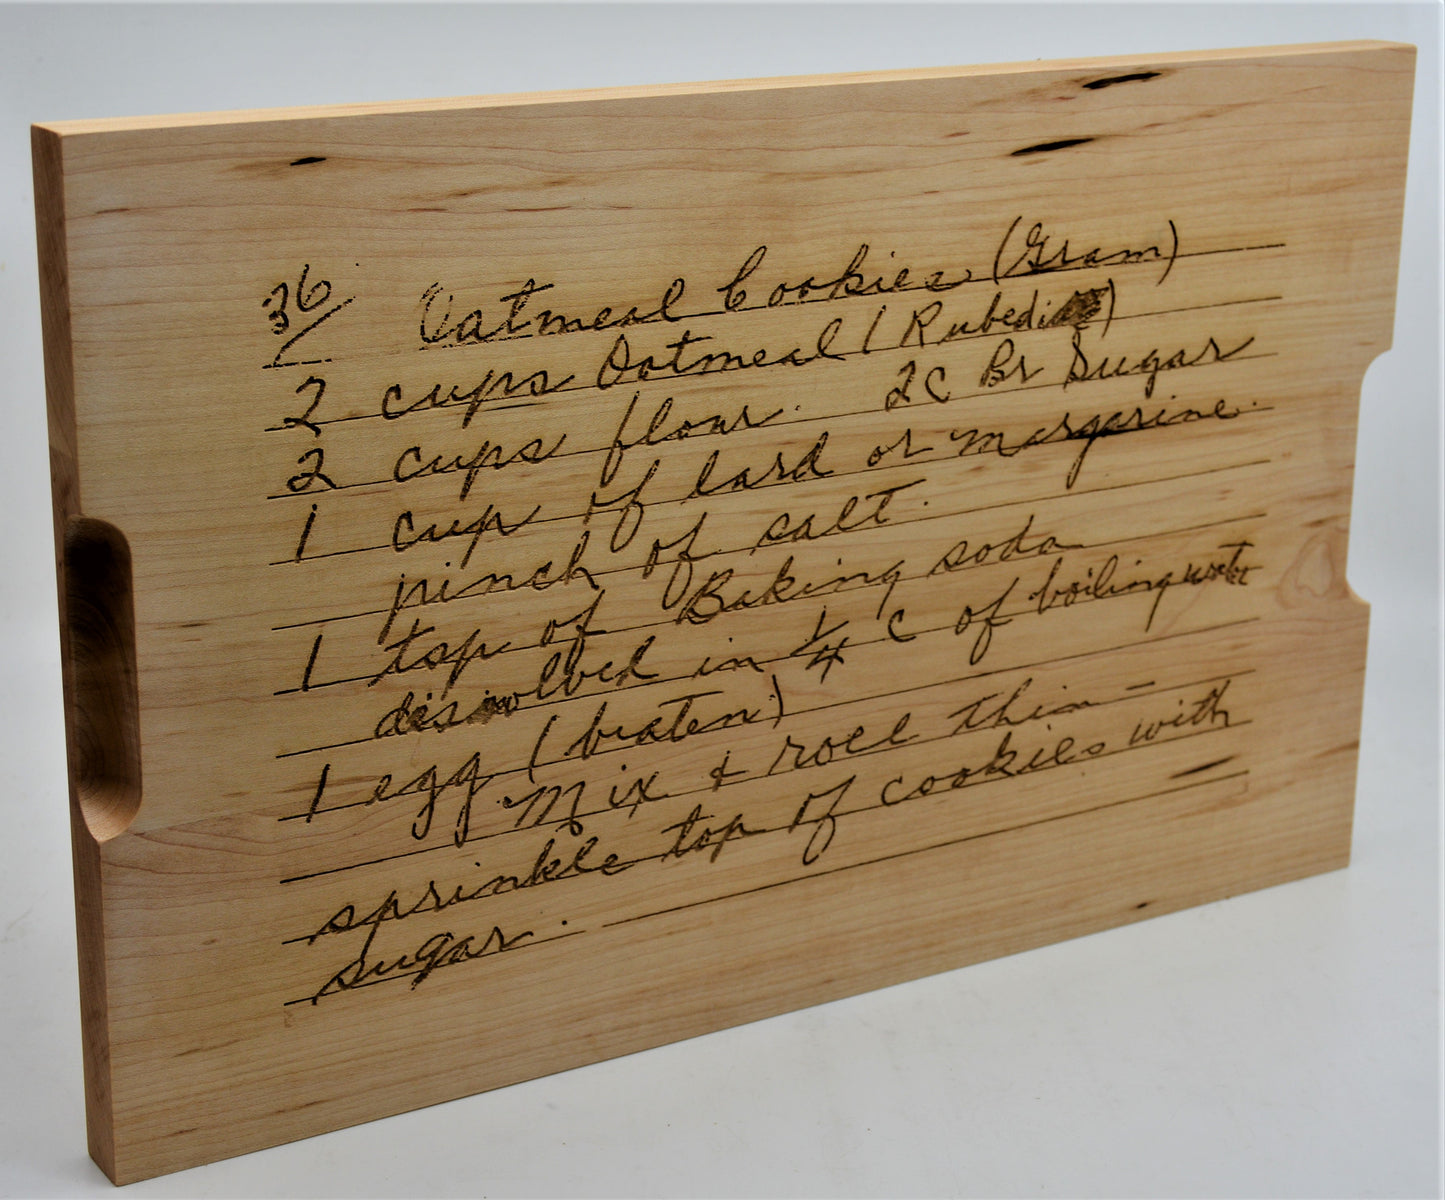 36 Oatmeal Cookies (Gram)
2 cups Oatmeal (Rubed
2 cups flour. 2C Br Sugar
1 cup of lard or margarine.
pinch of salt.
1 tsp of Baking soda
dissolved in 1/4 C of boiling water
1 egg (beaten)
Mix & roll thin -
sprinkle top of cookies with
sugar.